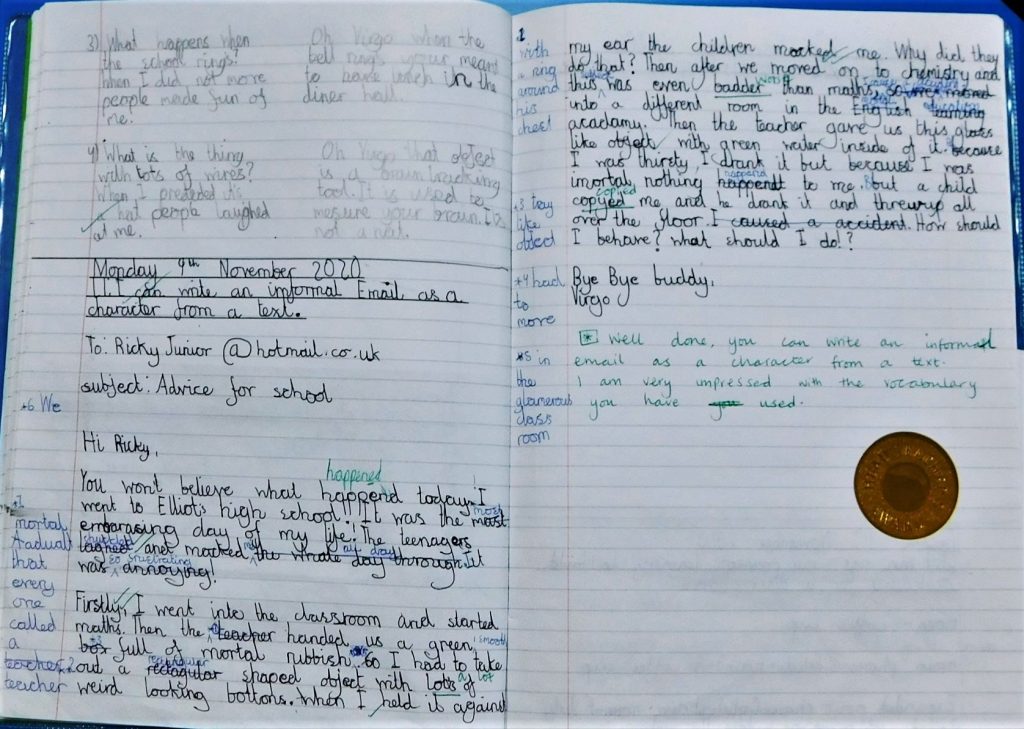 3) What happens when
the school rings?
When I did not move
people made fun of
me!
Oh Virgo when the
bell rings your meant
to have lunch in the
diner hall.
4) What is the thing
with lots of wires?
When I
hat people laughed
at me.
Oh Virgo that object
is a brain tracking
tool. It is used to
mesure your brain. It is
not a hat.
Monday 9th November 2020
I can write an informal Email as a
character from a text.
To: Ricky Junior @hotmail.co.uk
subject: Advice for school
+6 We
Hi Ricky,
happened
You wont believe what happend today! I
went to Elliots high school!! It was the most
embarasing day of my life! The teenagers
and mocked me all day through. It
was so frustrating annoying!
mortal
that
every
one
called
a
teacher
teacher
Firstly, I went into the classroom and started
maths. Then the teacher handed us a green, smooth
box full of mortal rubbish. So I had to take
out a rectagular shaped object with lots of
a lot
weird looking bottons. When I held it against
with
a ring
around
his
chest
my ear the children mocked me. Why did they
do that? Then after we moved on to chemistry and
this was even badder than maths,
worse
into a different room in the English learning
acadamy. Then the teacher gave us this glass
like object with green water inside of it. because
I was thirsty, I drank it but because I was
imortal nothing happendt to me. But a child
happend
copyed me and he drank it and threwup all
copied
over the floor. I caused a accident. How should
I behave? What should I do!?
+3 tray
like
object
+4 had
to
more
Bye Bye buddy,
Virgo
*5 in
the
glamerous
class
room
Well done, you can write an informal
email as a character from a text.
I am very impressed with the vocabulary
you have you used.